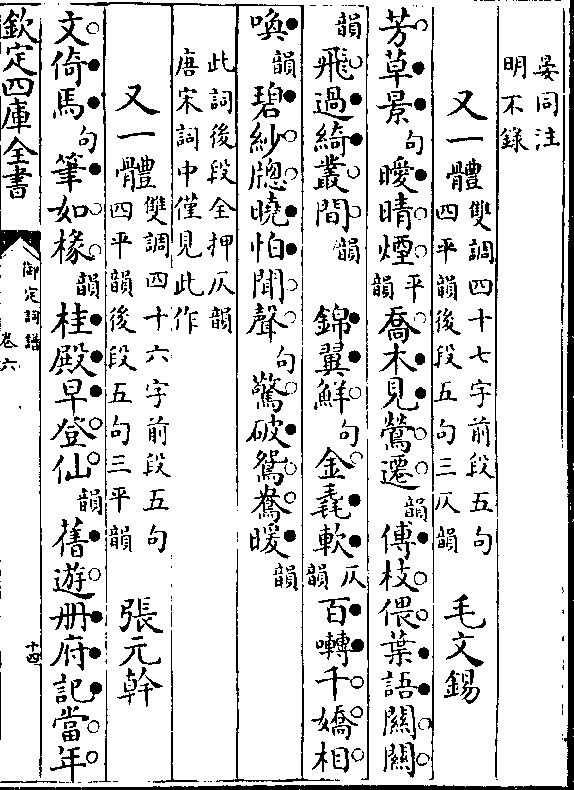 晏同注
明不録
又一體 雙調四十七字前段五句
四平韻後段五句三仄韻 毛文錫
芳草景句曖晴煙平韻喬木見鶯遷韻傳枝偎葉語關關
韻飛過綺叢間韻 錦翼鮮句金毳軟仄韻百囀千嬌相
喚韻碧紗牕曉怕聞聲句驚破鴛鴦暖韻
此詞後段全押仄韻
唐宋詞中僅見此作
又一體 雙調四十六字前段五句
四平韻後段五句三平韻 張元幹
文倚馬句筆如椽韻桂殿早登仙韻舊遊册府記當年
欽定四庫全書
御定詞譜
卷六
十四